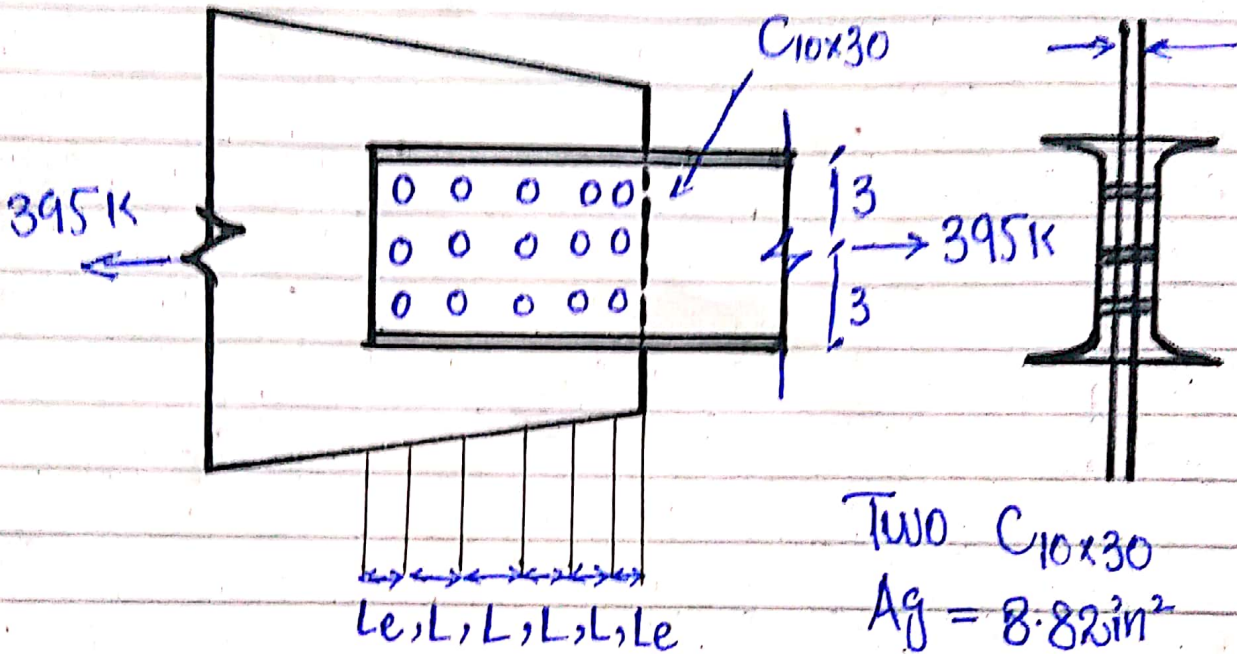 C10x30
395K
3
395K
3
Le, L, L, L, L, Le
Two C10x30
Ag = 8.82in²